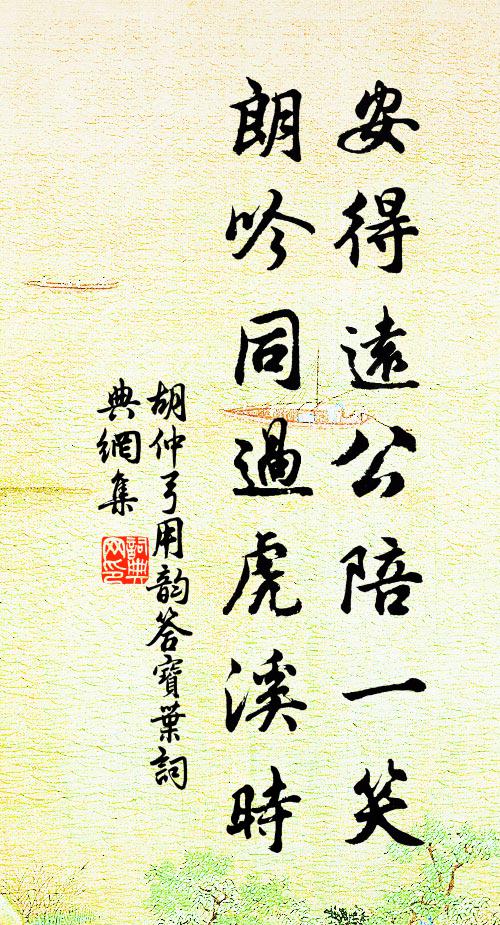 安得遠公陪一笑
朗吟同過虎溪時
胡仲弓用韵答寶葉詞
典網集
詞典
网印